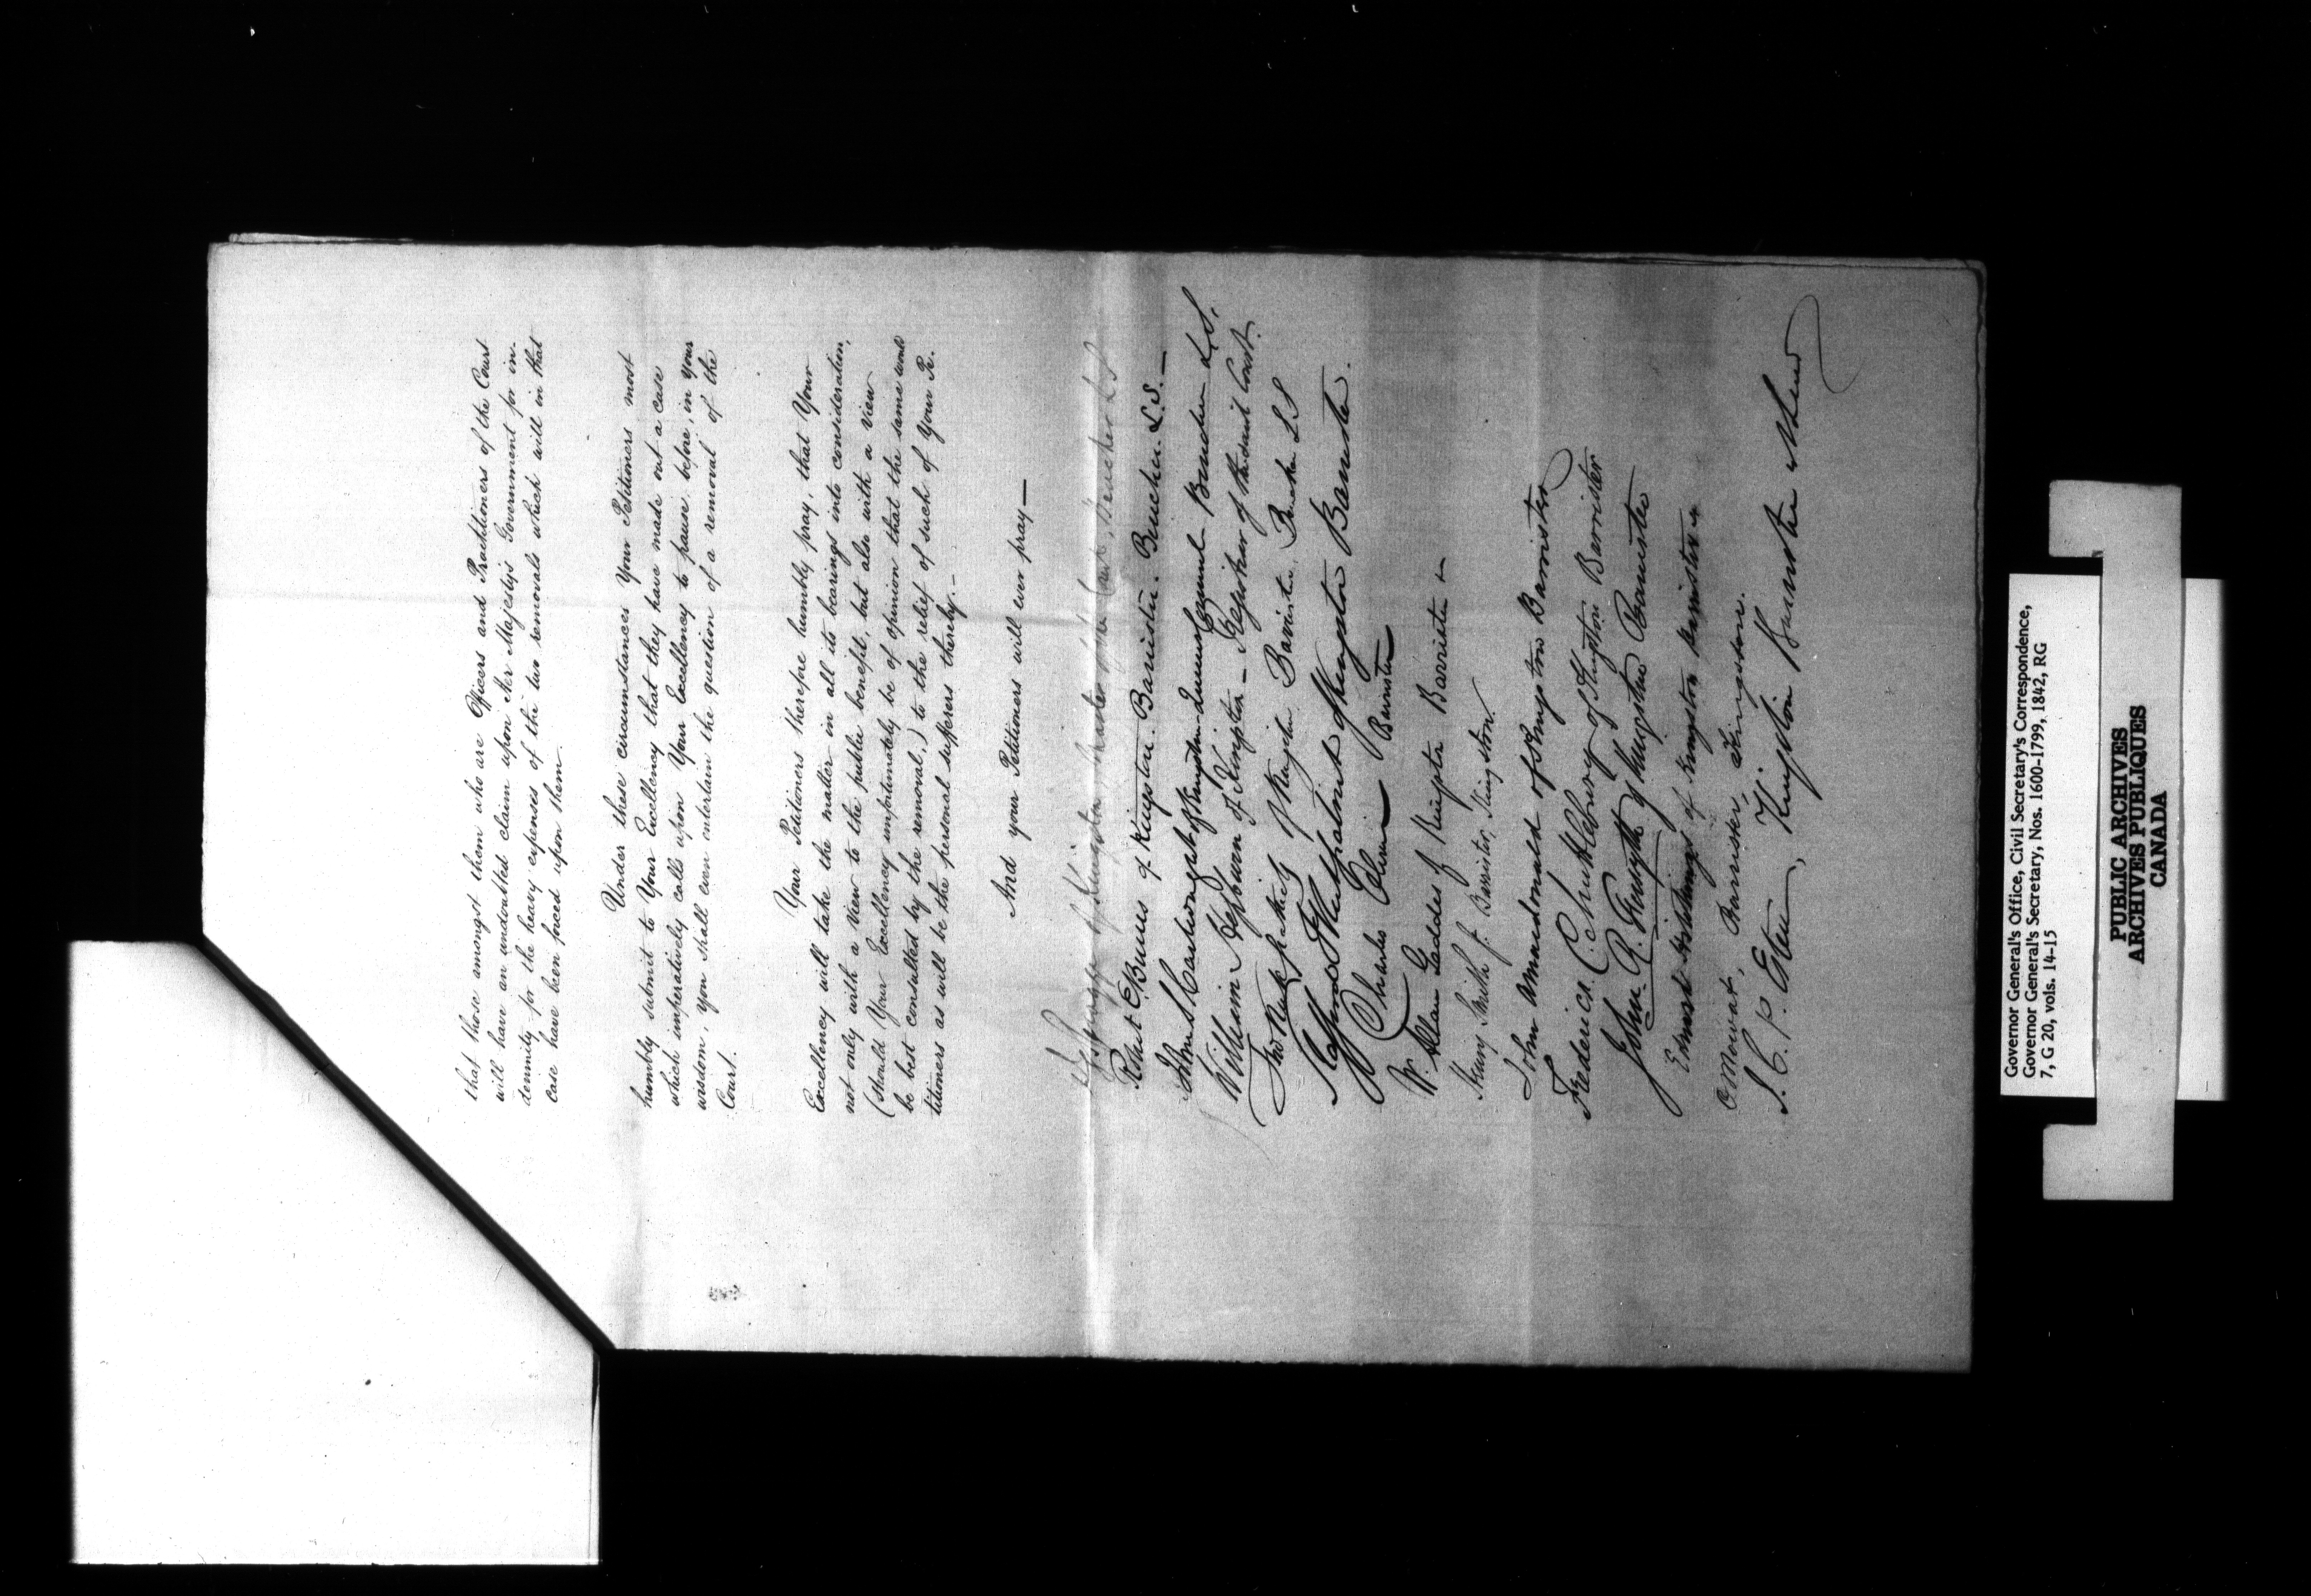 that those amongst them who are Officers and Practitioners of the Court
will have an undoubted claim upon Her Majesty's Government for in-
demnity for the heavy expenses of the two removals which will in that
case have been forced upon them.
Under these circumstances Your Petitioners most
humbly submit to Your Excellency that they have made out a case
which imperatively calls upon Your Excellency to pause, before, in your
wisdom, you shall even entertain the question of a removal of the
Court.
Your Petitioners therefore humbly pray, that Your
Excellency will take the matter in all its bearings into consideration,
not only with a view to the public benefit, but also with a view
(should Your Excellency unfortunately be of opinion that the same would
be best consulted by the removal,) to the relief of such of Your Pe-
titioners as will be the personal sufferers thereby.-
And your Petitioners will ever pray—
of Kingston, Master of the Court, Bencher LS
Robert E Burns of Kingston. Barrister. Bencher. L.S.—
John S Cartwright of Kingston Queens Counsel Bencher L.S.
William Hepburn of Kingston - Registrar of the said Court.
of Kingston Barrister, Bencher LS
Kirkpatrick of Kingston Barrister.
Charles Barrister
W. Allan Geddes of Kingston Barrister
Henry Smith Jr Barrister, Kingston
John Amacdonald of Kingston Barrister
Frederick C. Muttlebury of Kingston Barrister
John R. Forsyth of Kingston Barrister
Hutchings of Kingston Barrister
O Mowat, Barrister, Kingston.
J. C. P. Esten, Kingston Barrister
Governor General's Office, Civil Secretary's Correspondence,
Governor General's Secretary, Nos. 1600-1799, 1842, RG
7, G 20, vols. 14-15
PUBLIC ARCHIVES
ARCHIVES PUBLIQUES
CANADA